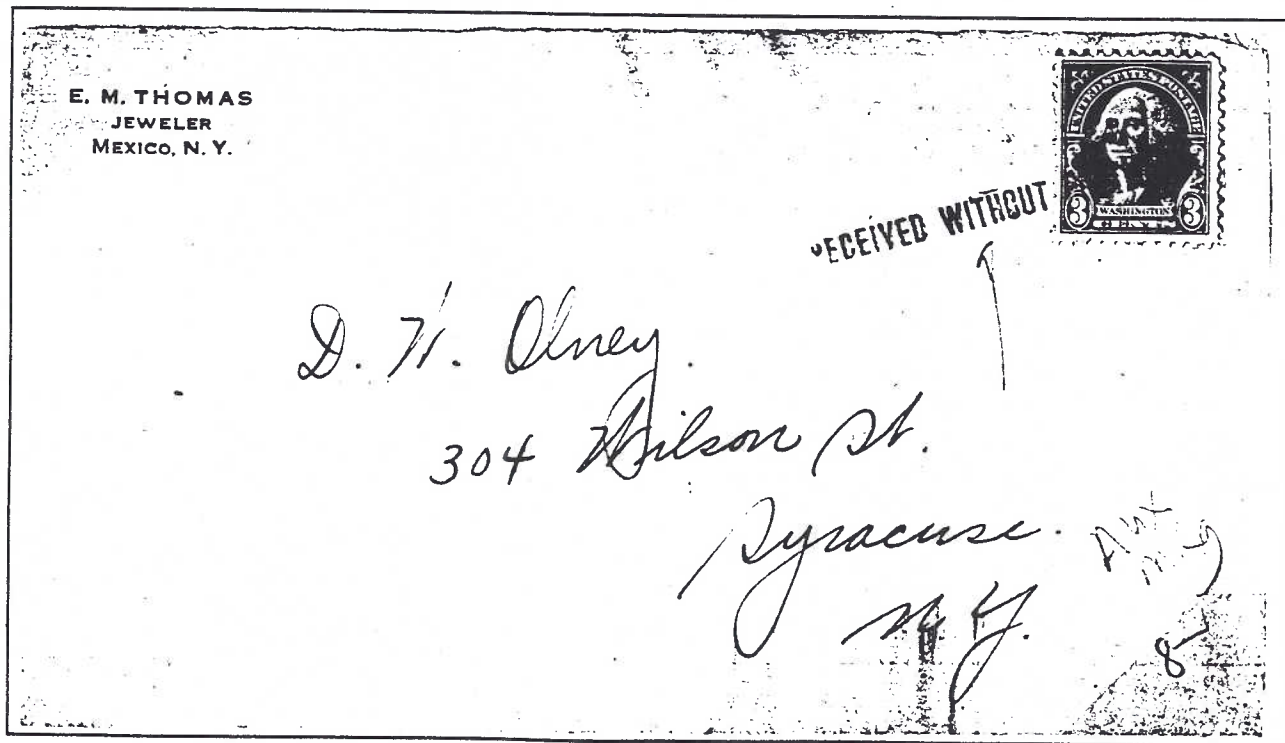 E. M. THOMAS
JEWELER
MEXICO, N. Y.
UNITED STATES POSTAGE
3 WASHINGTON 3
CENTS
RECEIVED WITHOUT
D. W. Olney.
304 Wilson St.
Syracuse.
N. Y.
8